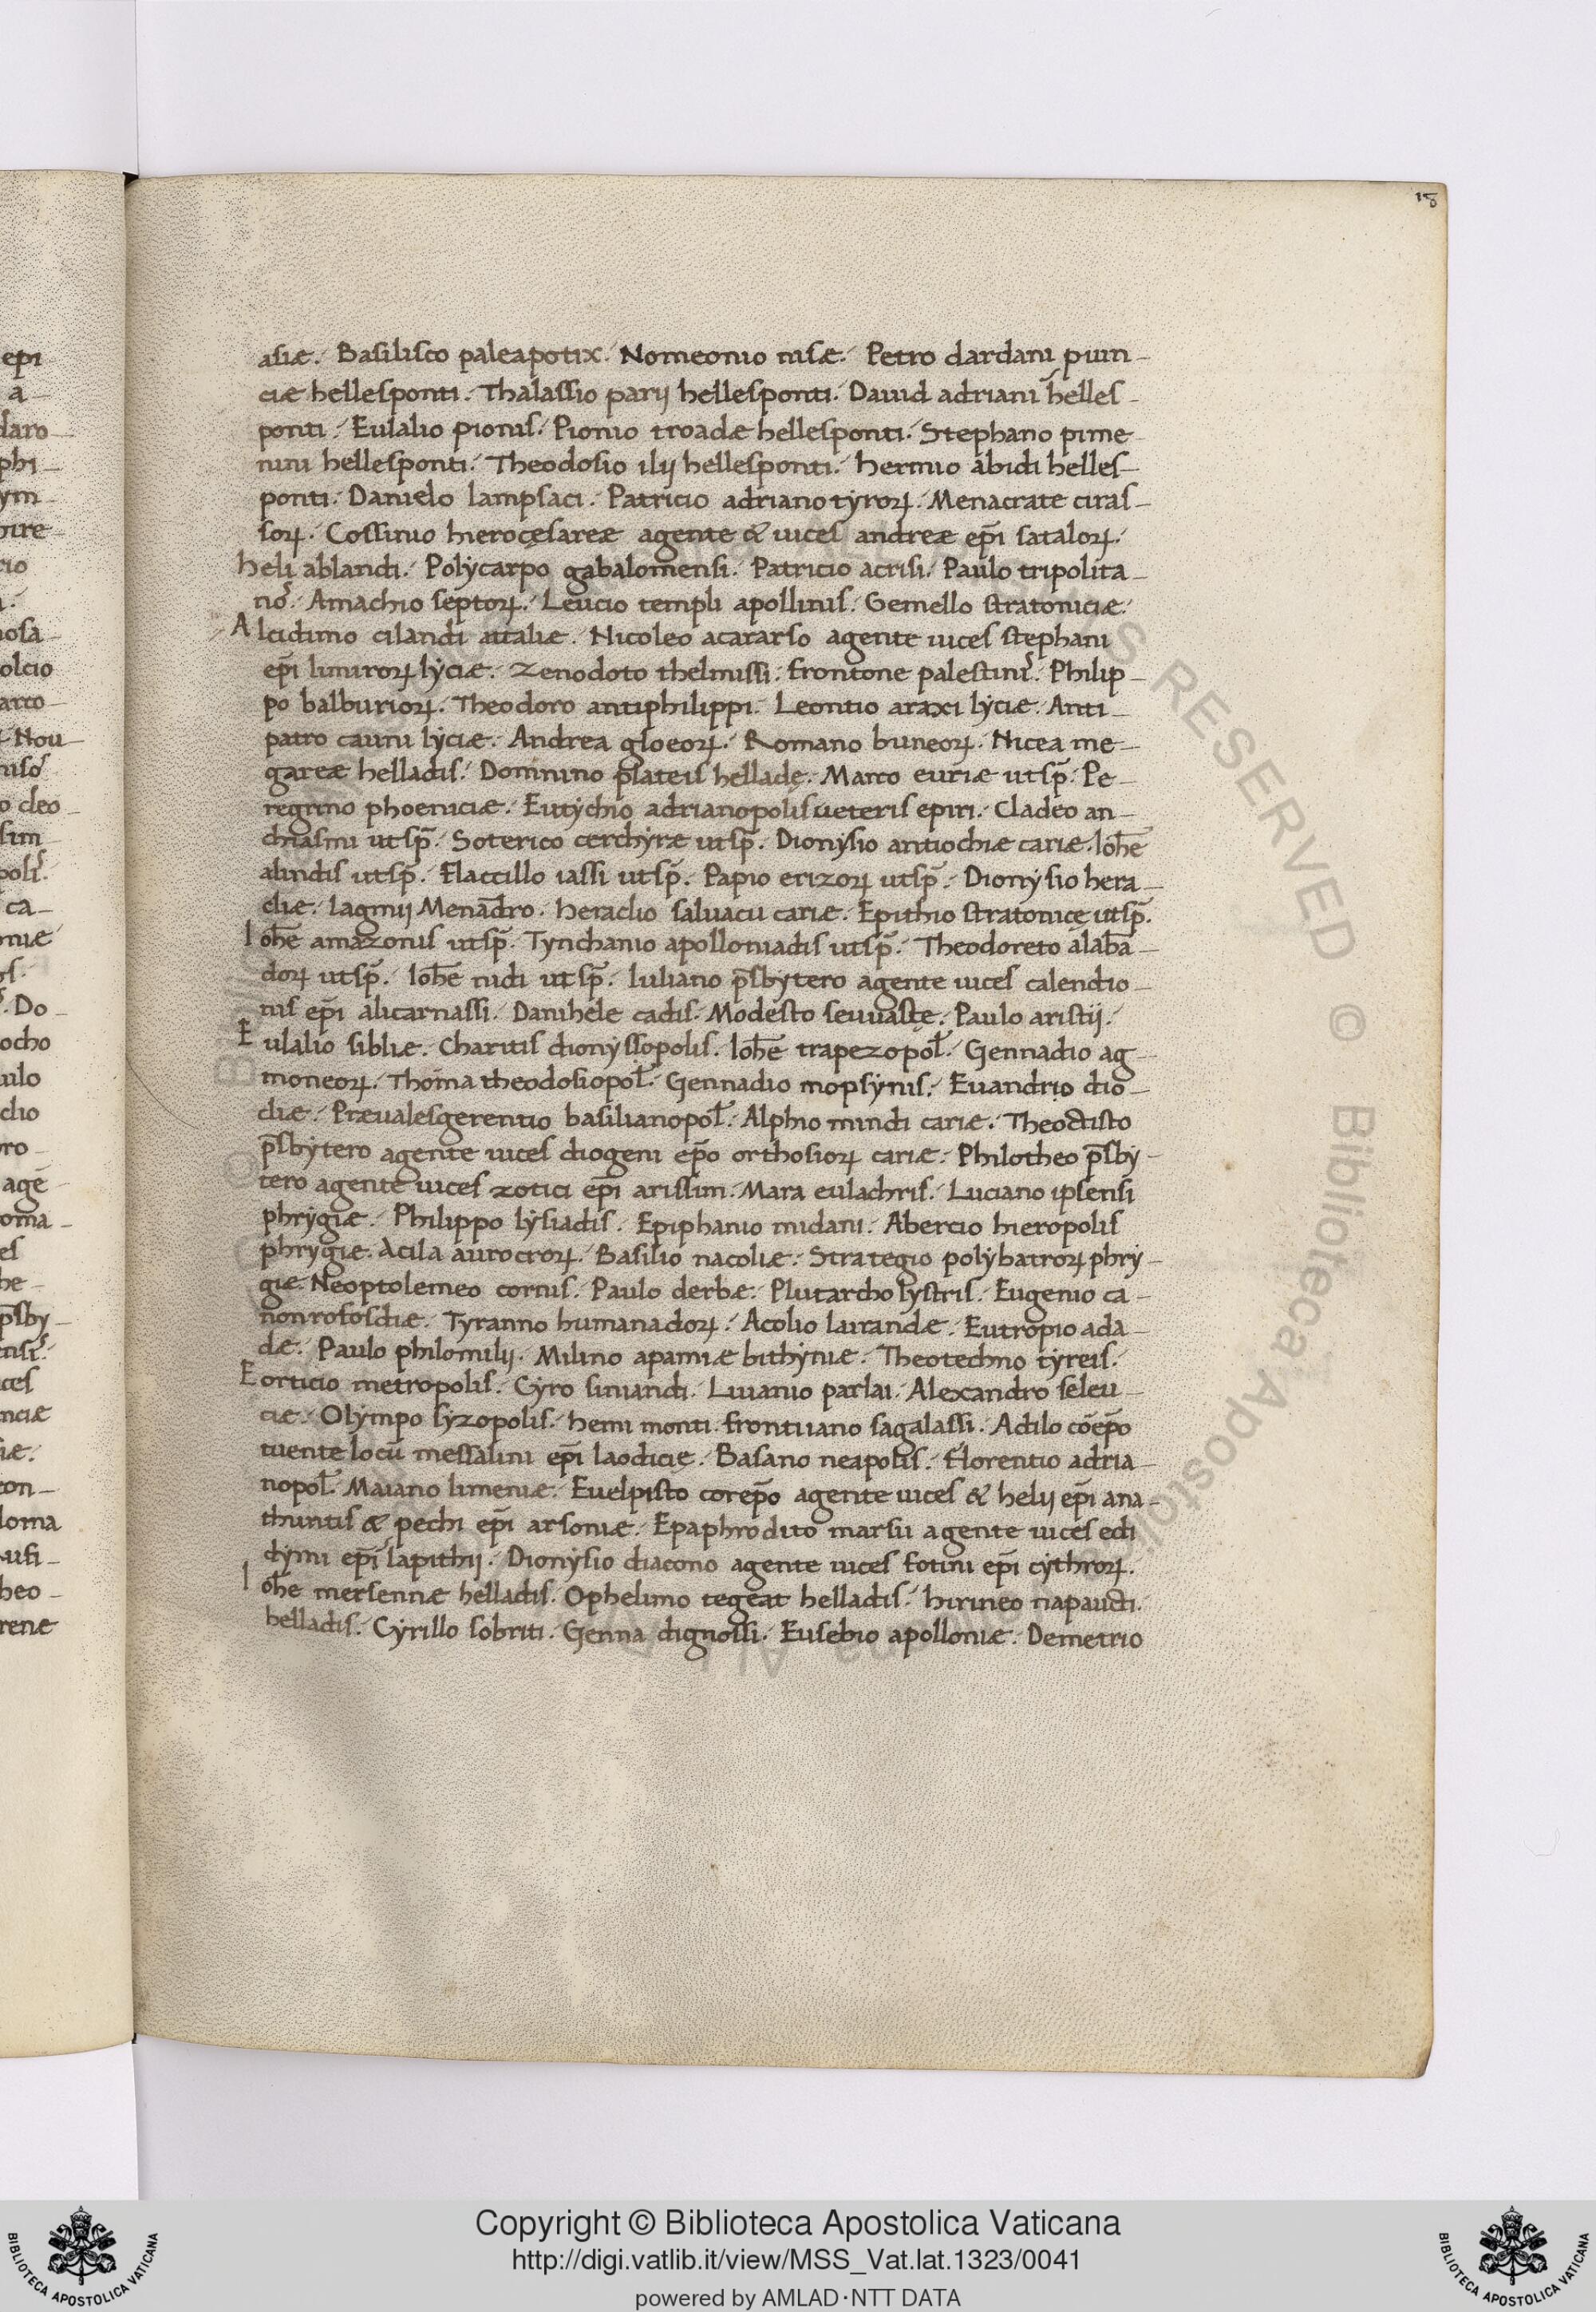 18
asiæ. Basilisco paleapotix. Nomeonio nisæ. Petro dardani puin-
ciæ hellesponti. Thalassio parij hellesponti. Dauid adriani helles-
ponti. Eulalio pionis. Pionio troadæ hellesponti. Stephano pime-
nini hellesponti. Theodosio ilij hellesponti. hermio abidi helles-
ponti. Danielo lampsaci. Patricio adrianotyroꝝ. Menacrate ciras-
soꝝ. Cossinio hierocęsareæ agente & uices andreæ ep̄i sataloꝝ.
heli ablandi. Polycarpo gabalomensi. Patricio acrisi. Paulo tripolita-
no. Amachio septoꝝ. Leucio templi apollinis. Gemello stratoniciæ.
Alcidimo cilandi attaliæ. Nicoleo acararso agente uices stephani
ep̄i limiroꝝ lyciæ. Zenodoto thelmissi. frontone palestini. Philip-
po balburioꝝ. Theodoro antiphilippi. Leontio araxi lyciæ. Anti-
patro cauni lyciæ. Andrea gloeoꝝ. Romano buneoꝝ. Nicea me-
gareæ helladis. Domnino plateis helladę. Marco euriæ utsp̄. Pe-
regrino phoeniciæ. Eutychio adrianopolis ueteris epiri. Cladeo an-
chiasmi utsp̄. Soterico cerchyræ utsp̄. Dionysio antiochiæ cariæ. Ioh̄e
alindis utsp̄. Flaccillo iassi utsp̄. Papio erizoꝝ utsp̄. Dionysio hera-
cliæ. lagmij Menandro. heraclio saluacu cariæ. Epithio stratonicę utsp̄.
Ioh̄e amazonis utsp̄. Tynchanio apolloniadis utsp̄. Theodoreto alaba-
doꝝ utsp̄. Ioh̄e nidi utsp̄. Iuliano p̄sbytero agente uices calendio-
nis ep̄i alicarnassi. Danihele cadis. Modesto seuuaste. Paulo aristij.
Eulalio sibliæ. Charitis dionyssopolis. Ioh̄e trapezopoł. Gennadio ag-
moneoꝝ. Thoma theodosiopoł. Gennadio mopsynis. Euandrio dio-
cliæ. Præualesgerentio basilianopoł. Alphio mindi cariæ. Theoctisto
p̄sbytero agente uices diogeni ep̄o orthosioꝝ cariæ. Philotheo p̄sby-
tero agente uices zotici ep̄i arissim. Mara eulachris. Luciano ipsensi
phrygiæ. Philippo lysiadis. Epiphanio midani. Abercio hieropolis
phrygiæ. Acila aurocroꝝ. Basilio nacoliæ. Strategio polybatroꝝ phry-
giæ. Neoptolemeo cornis. Paulo derbæ. Plutarcho lystris. Eugenio ca-
nonrofosdiæ. Tyranno humanadoꝝ. Acolio lairandæ. Eutropio ada-
dæ. Paulo philomilij. Milino apamiæ bithyniæ. Theotechno tyreis.
Eorticio metropolis. Cyro siniandi. Liuanio parlai. Alexandro seleu-
ciæ. Olympo syzopolis. hemi monti. frontiiano sagalassi. Actilo cōep̄o
tuente locū messalini ep̄i laodicię. Basano neapolis. Florentio adria-
nopoł. Maiano limeniæ. Euelpisto corep̄o agente uices & helij ep̄i ana-
thuntis & pechi ep̄i arsoniæ. Epaphrodito marsu agente uices edi
dymi ep̄i lapithij. Dionysio diacono agente uices fotini ep̄i cythroꝝ.
Ioh̄e mersennæ helladis. Ophelimo tegeat helladis. hirineo napaucti.
helladis. Cyrillo sobriti. Genna dignossi. Eusebio apolloniæ. Demetrio
Copyright © Biblioteca Apostolica Vaticana
http://digi.vatlib.it/view/MSS_Vat.lat.1323/0041
powered by AMLAD·NTT DATA